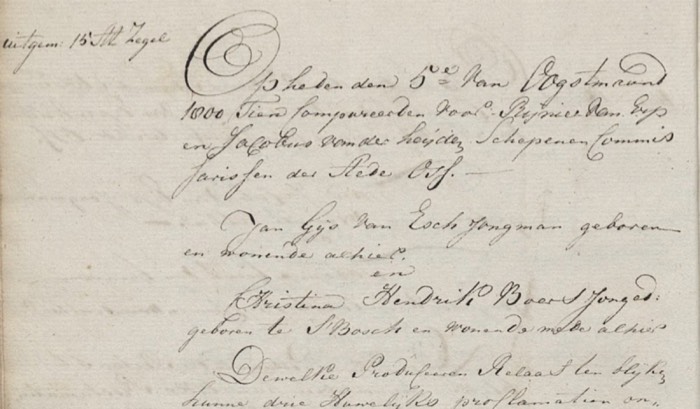 uitgem: 15 St Zegel
Op heden den 5e van Oogstmaand
1800 Tien Compareerden voor Rijnier van Erp
en Jacobus van der heijden Schepenen Commis
sarissen der Stede Oss. —
Jan Gijs van Esch Jongman geboren
en wonende alhier.
en
Christina Hendrik Boers Jonged:
geboren te S'Bosch en wonende mede alhier
Dewelke Produceren Relaas ten blijke
hunne drie Huwelijks proclamation on-